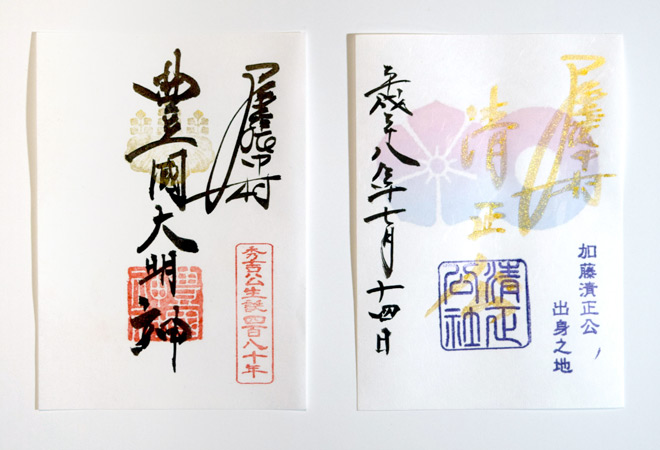 尾張中村
豊國大明神
秀吉公生誕四百八十年
尾張中村
清正公
平成二十八年七月十四日
加藤清正公
出身之地
清正
公社